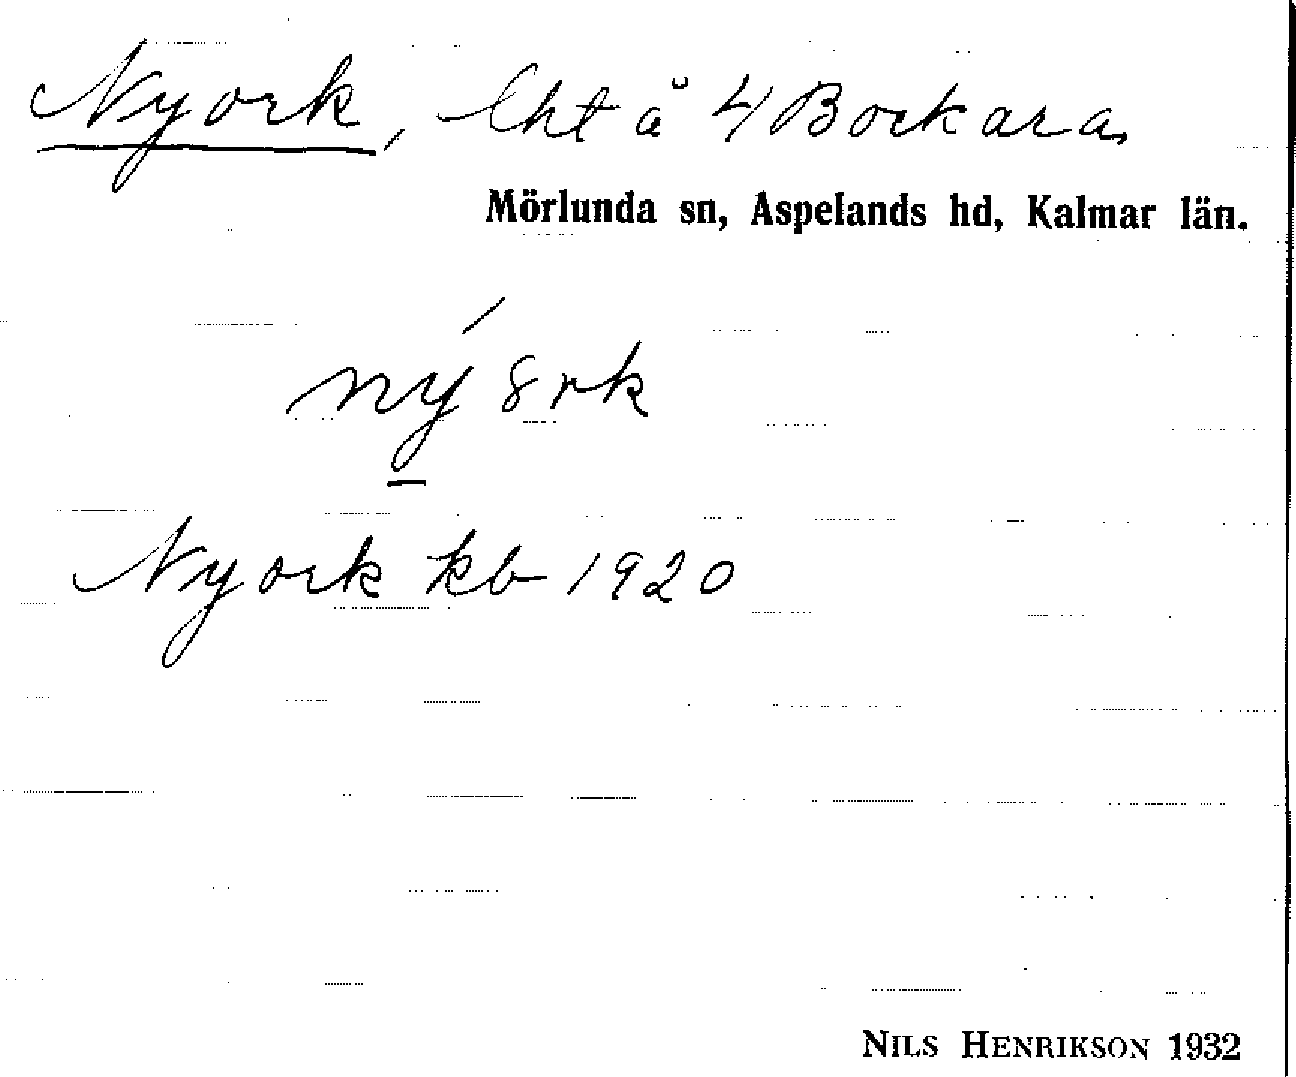 Nyork, lht å 4 Bockara,
Mörlunda sn, Aspelands hd, Kalmar län.
ný8rk
Nyork kb 1920
NILS HENRIKSON 1932